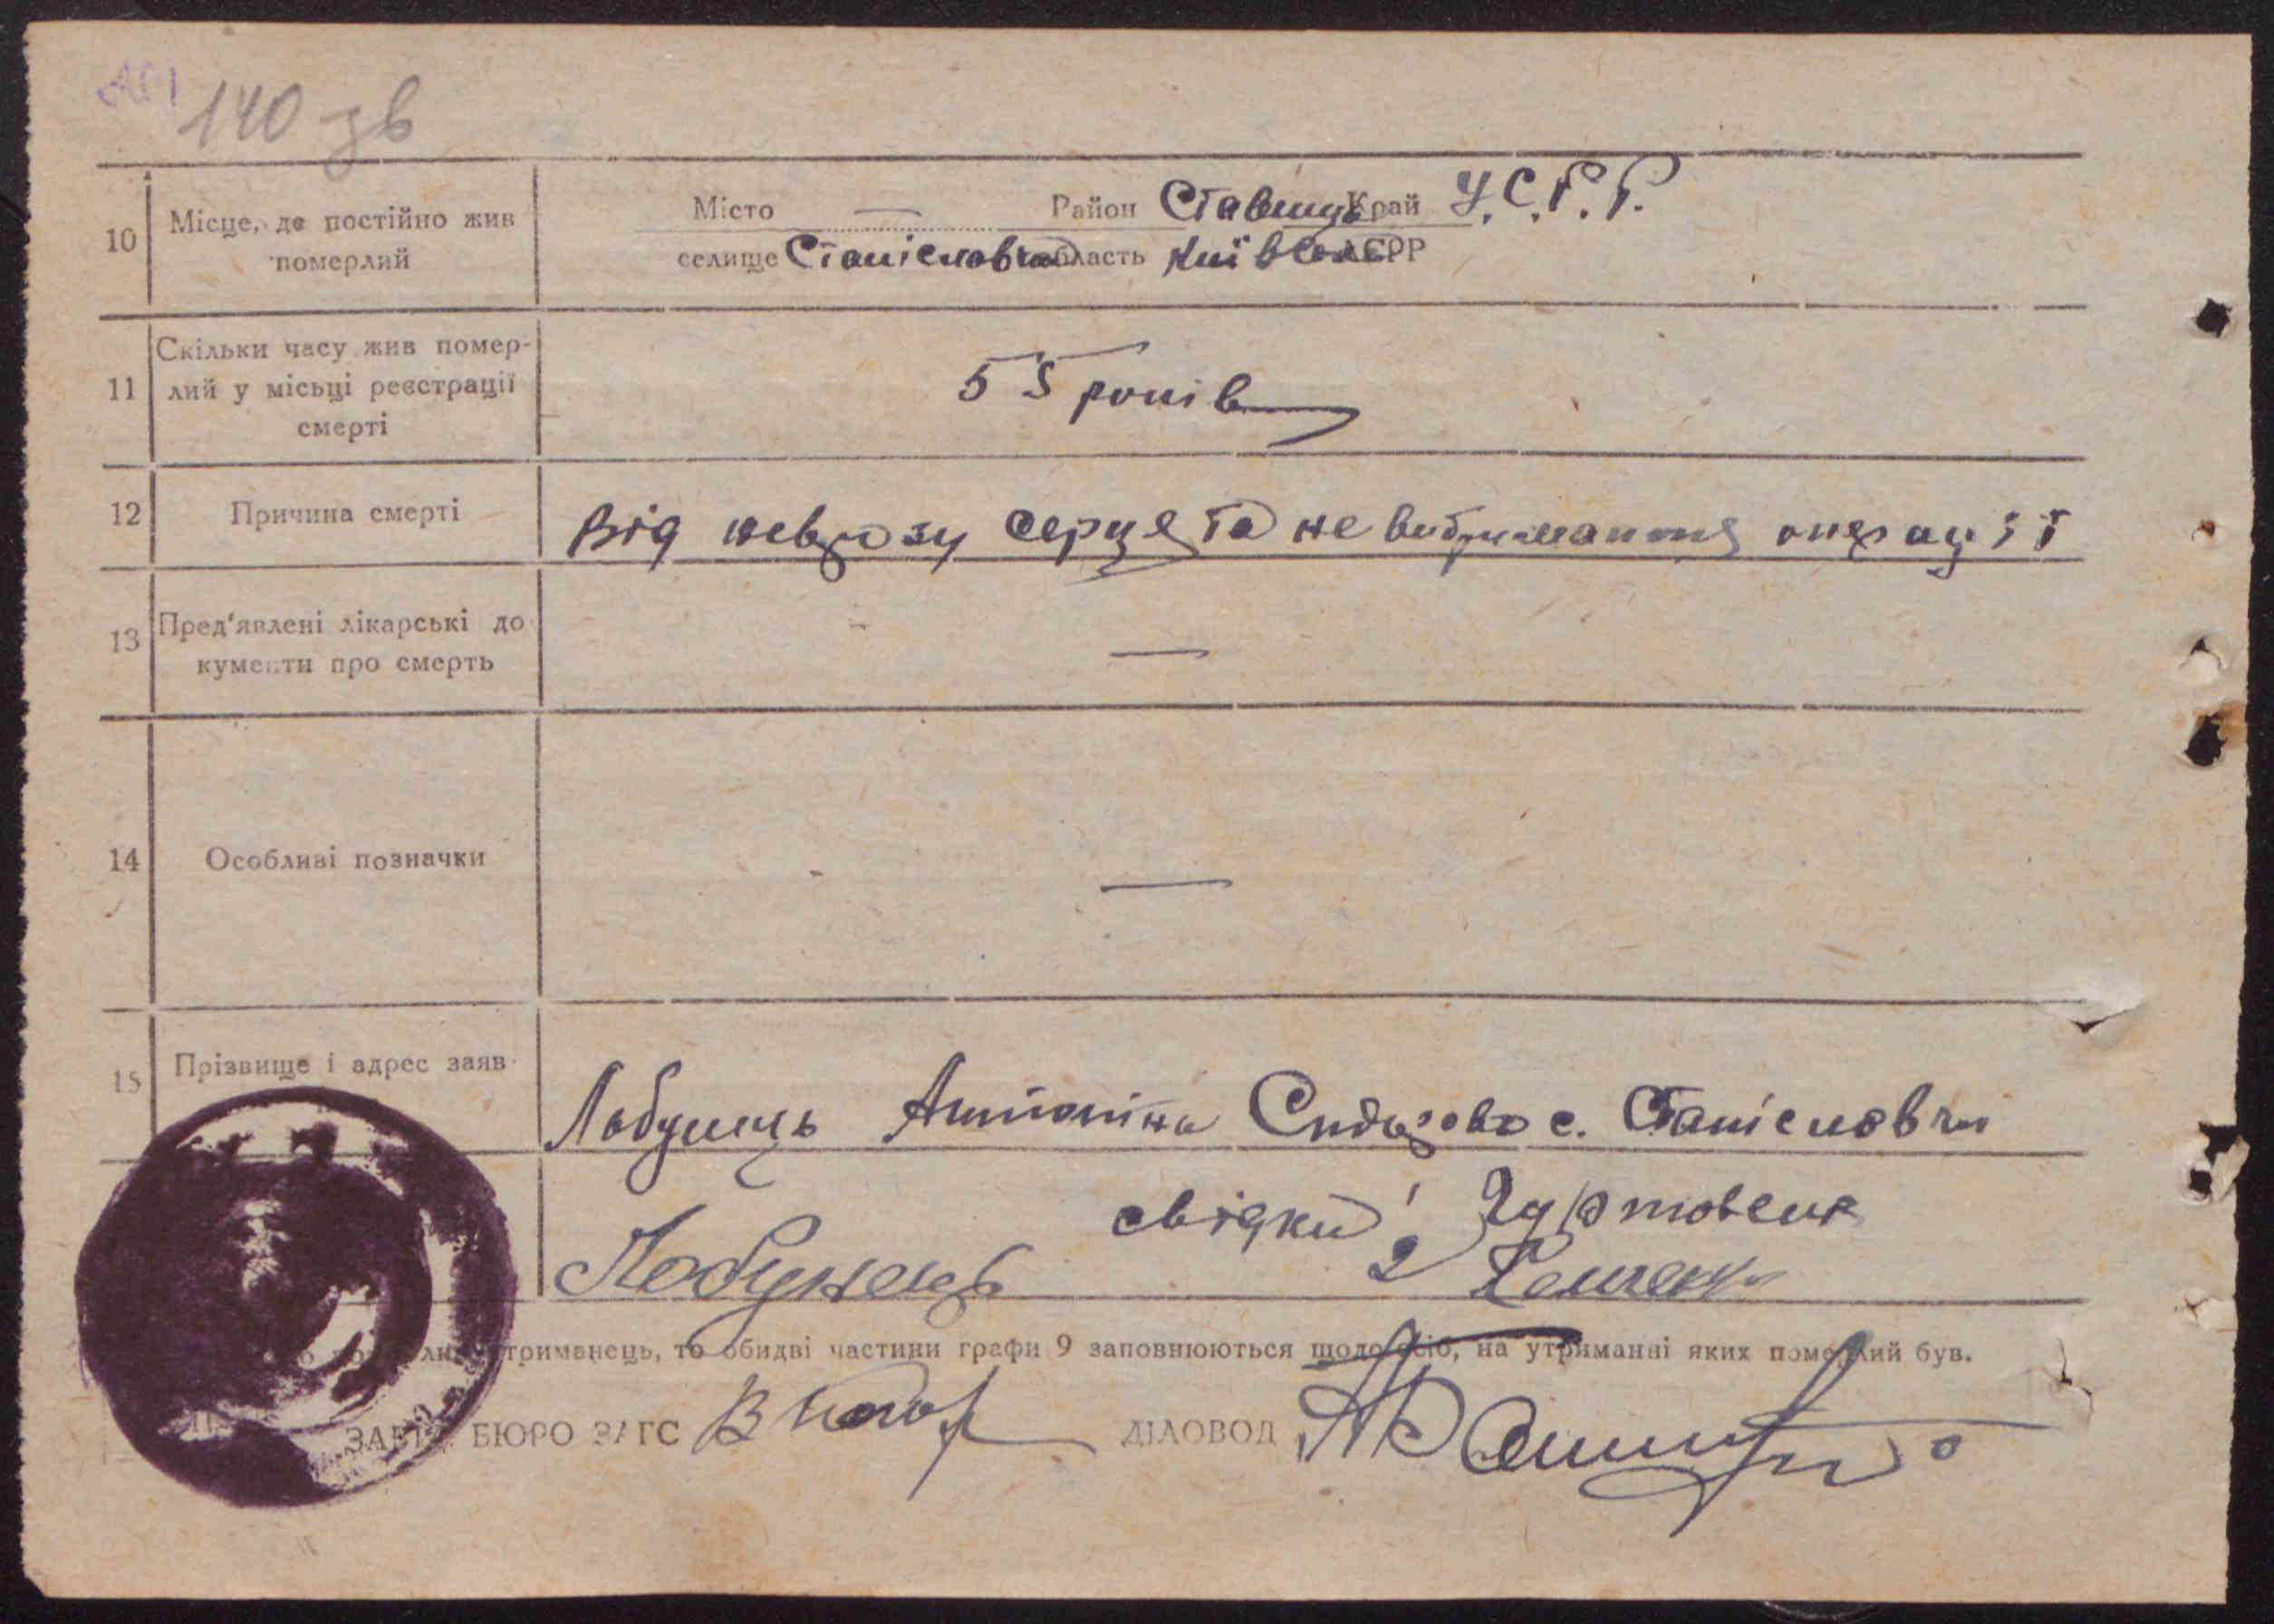 140 зв
10 Місце, де постійно жив померлий
Місто — Район Ставищ. Край У.С.Р.Р.
селище Станіславчик область Київська АСРР
11 Скільки часу жив помер-
лий у місьці реєстрації
смерті
55 років
12 Причина смерті
Від неврозу серця та не видержання операції
13 Пред'явлені лікарські до
кументи про смерть
—
14 Особливі позначки
—
15 Прізвище і адрес заяв
Лобунець Антоніна Сидорова с. Станіславчик
свідки:
Лобунець 2
триманець, то обидві частини графи 9 заповнюються щодо осіб, на утриманні яких померлий був.
ЗАВІД. БЮРО ЗАГС
ДІЛОВОД